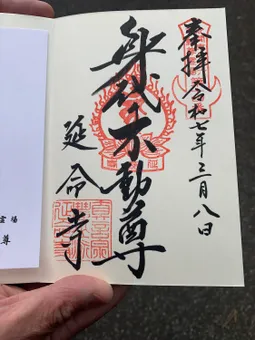 奉拝 令和七年三月八日
身代不動尊
延命寺
霊場
尊